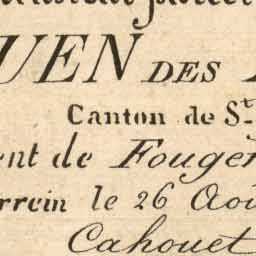 UEN DES
Canton de St.
ent de Fouger
rrein le 26 Aoi
Cahouet